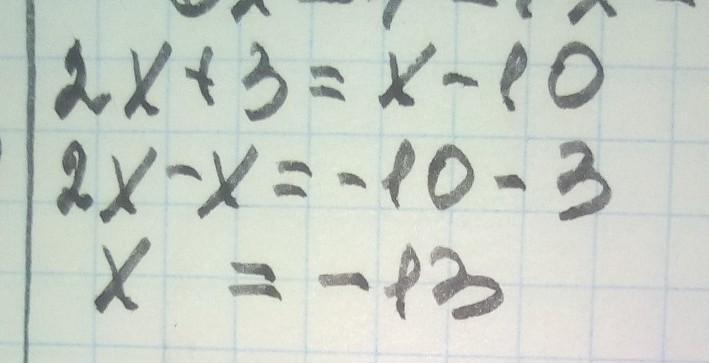 2x+3=x-10
2x-x=-10-3
x = -13